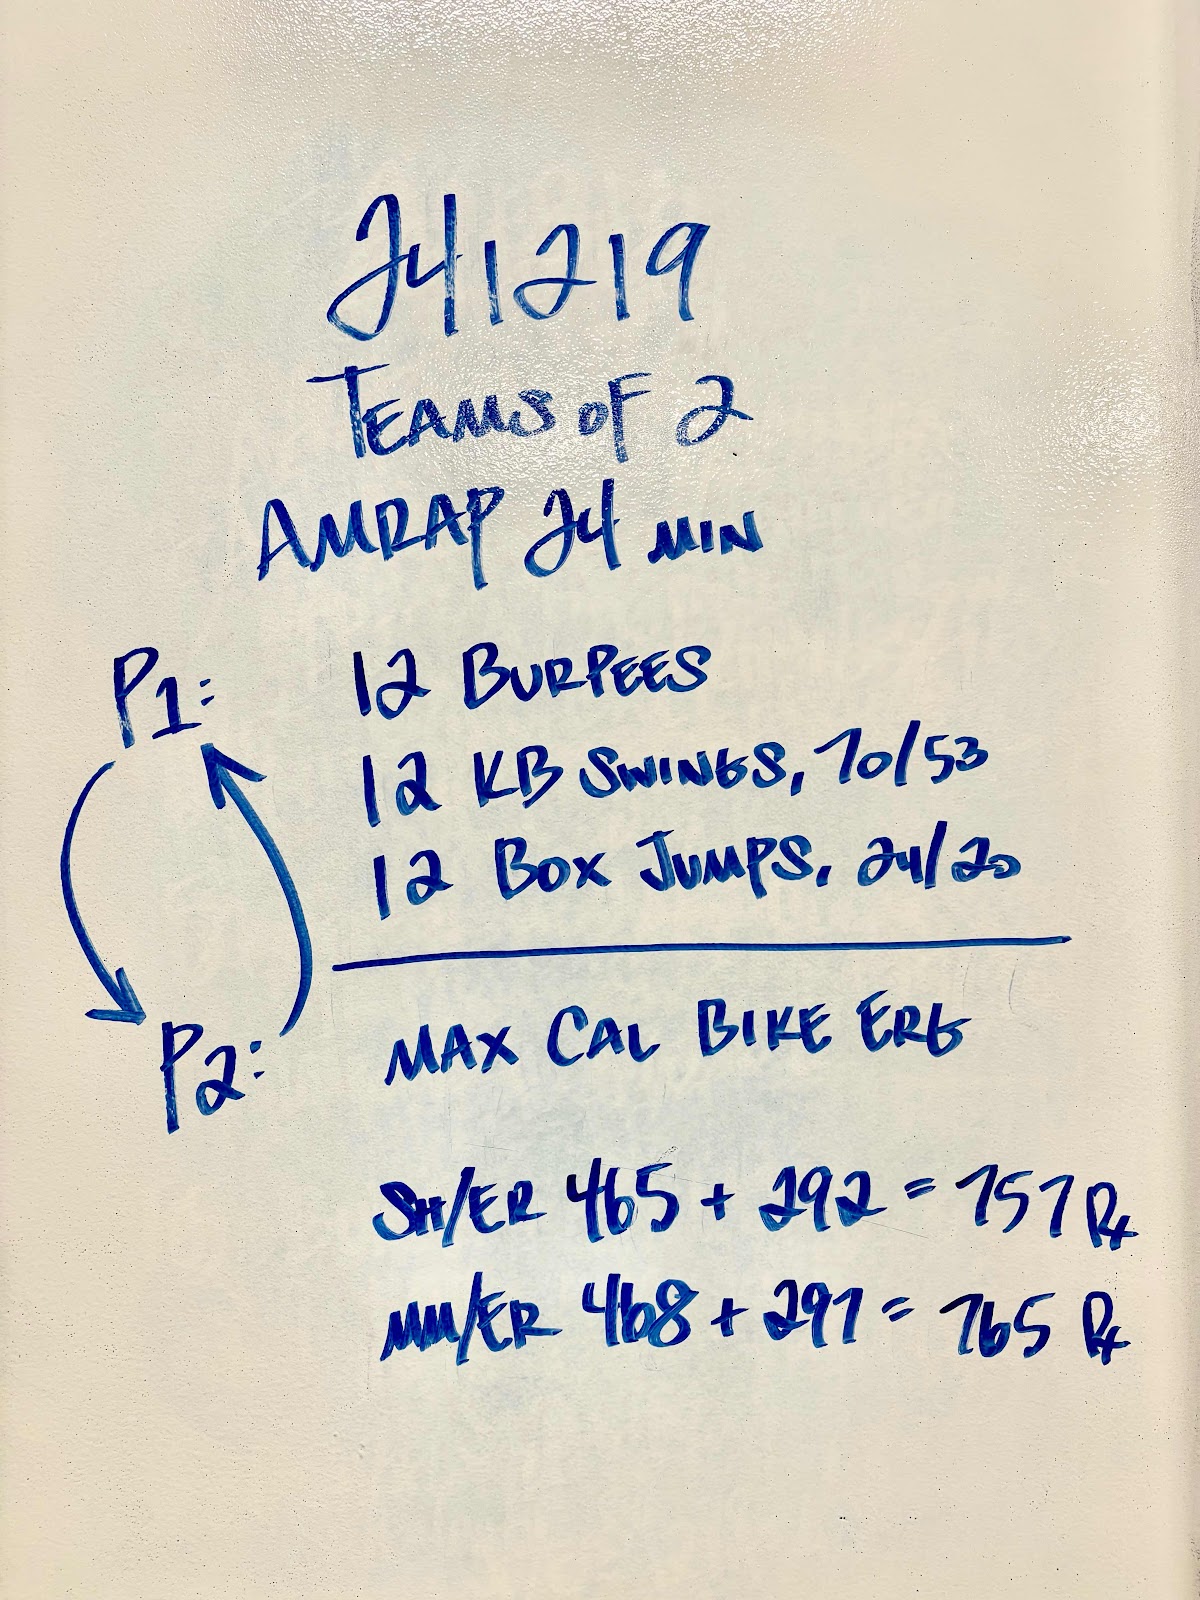 241219
TEAMS OF 2
AMRAP 24 MIN
P1: 12 BURPEES
12 KB SWINGS, 70/53
12 BOX JUMPS, 24/20
P2: MAX CAL BIKE ERG
SH/ER 465 + 292 = 757 Rx
MM/ER 468 + 297 = 765 Rx